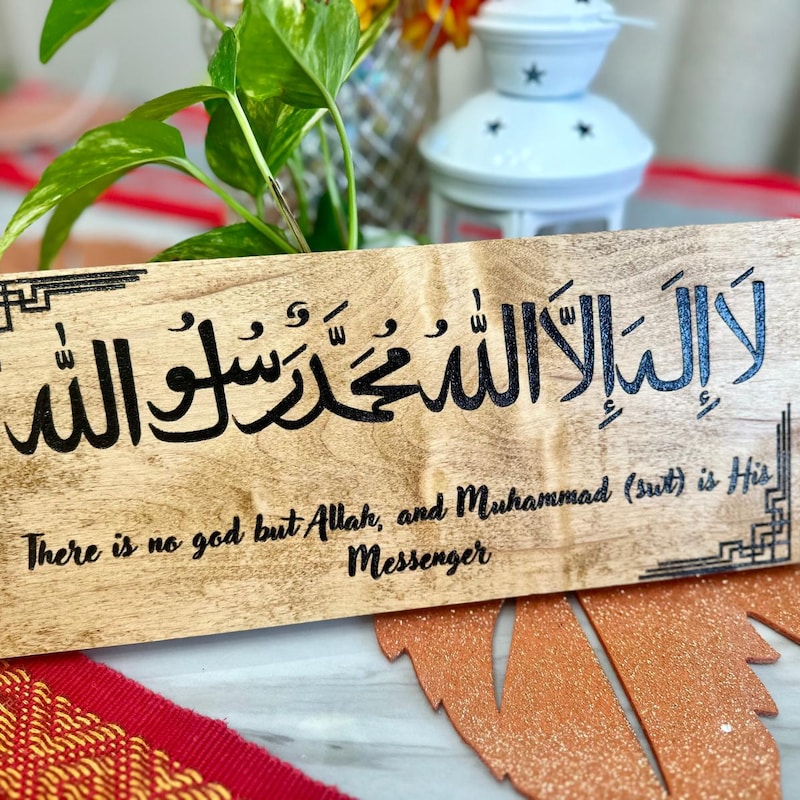 لَا إِلَهَ إِلَّا اللَّهُ مُحَمَّدٌ رَسُولُ اللَّهِ
There is no god but Allah, and Muhammad (swt) is His
Messenger